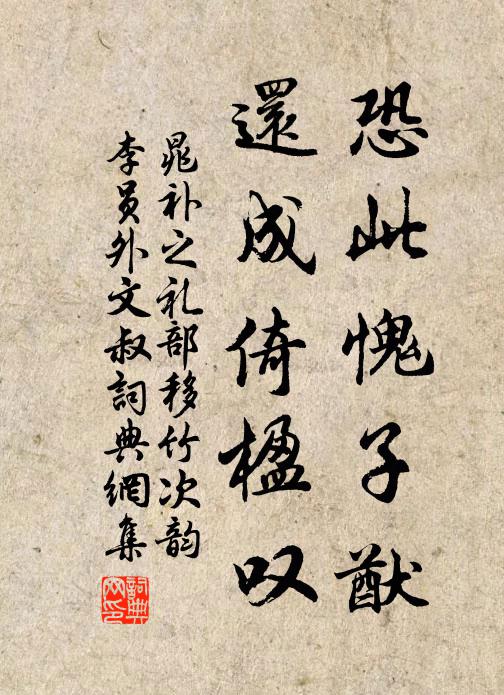 恐此愧子猷
還成倚楹叹
晁补之礼部移竹次韵
李员外文叔詞典網集
詞典網印